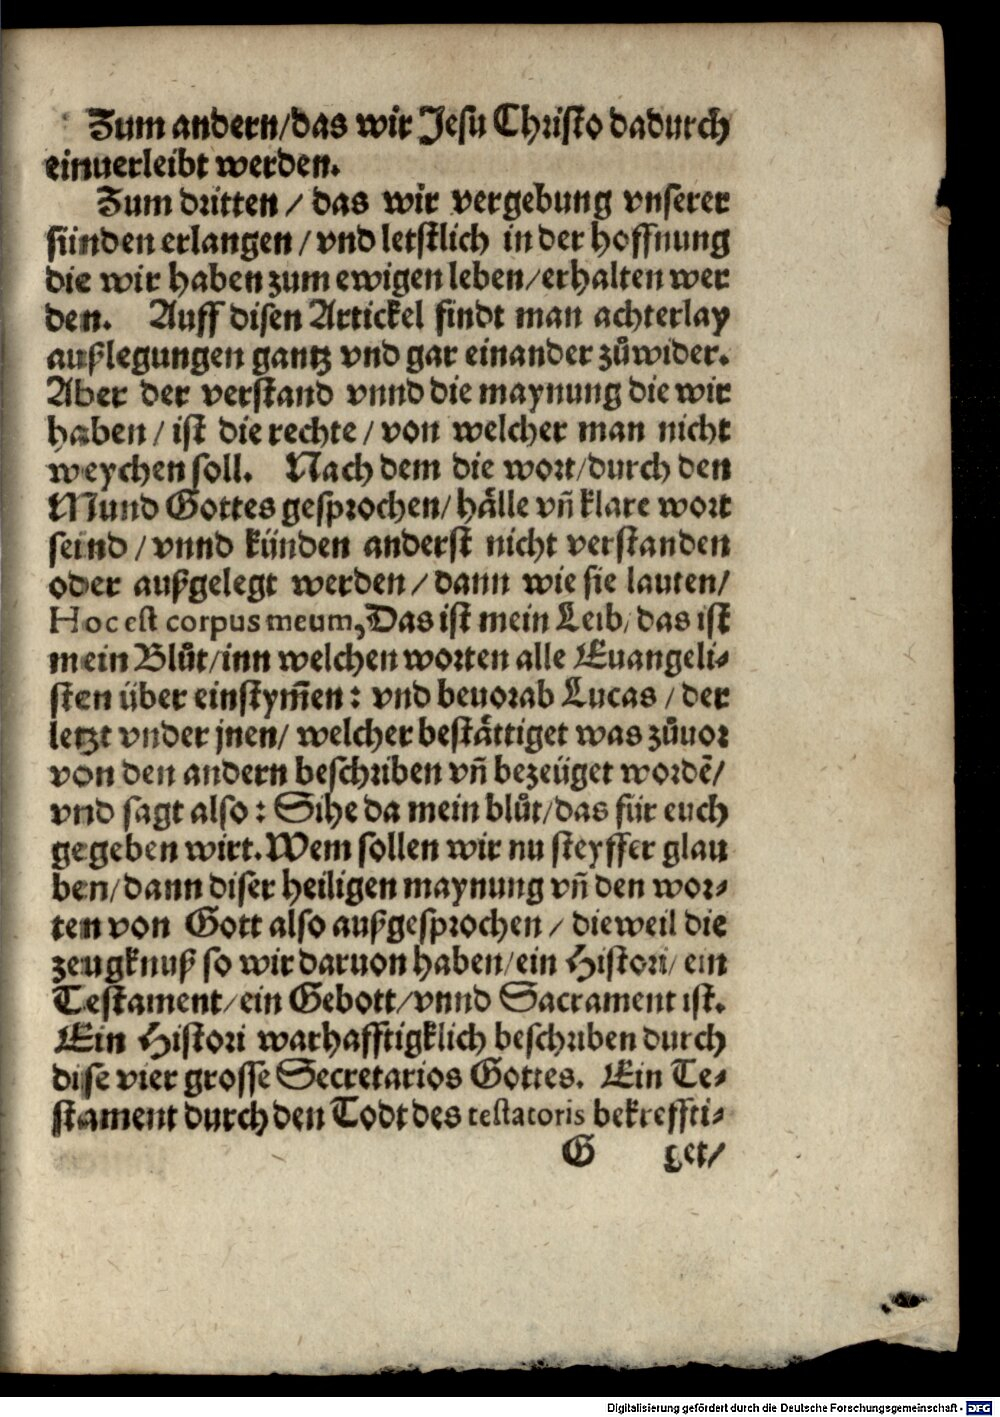 Zum andern/das wir Jesu Christo dadurch
einuerleibt werden.
Zum dritten / das wir vergebung vnserer
sünden erlangen / vnd letstlich in der hoffnung
die wir haben zum ewigen leben/erhalten wer
den. Auff disen Artickel findt man achterlay
außlegungen gantz vnd gar einander zůwider.
Aber der verstand vnnd die maynung die wir
haben / ist die rechte / von welcher man nicht
weychen soll. Nach dem die wort/durch den
Mund Gottes gesprochen/ hälle vn̄ klare wort
seind / vnnd künden anderst nicht verstanden
oder außgelegt werden / dann wie sie lauten/
Hoc est corpus meum, Das ist mein Leib/ das ist
mein Blůt/inn welchen worten alle Euangeli-
sten über einstym̄en: vnd beuorab Lucas / der
letzt vnder jnen/ welcher bestättiget was zůuor
von den andern beschriben vn̄ bezeüget wordē/
vnd sagt also: Sihe da mein blůt/das für euch
gegeben wirt. Wem sollen wir nu steyffer glau
ben/dann diser heiligen maynung vn̄ den wor-
ten von Gott also außgesprochen / dieweil die
zeugknuß so wir daruon haben/ein Histori/ ein
Testament/ein Gebott/vnnd Sacrament ist.
Ein Histori warhafftigklich beschriben durch
dise vier grosse Secretarios Gottes. Ein Te-
stament durch den Todt des testatoris bekreffti-
G get/
Digitalisierung gefördert durch die Deutsche Forschungsgemeinschaft - DFG